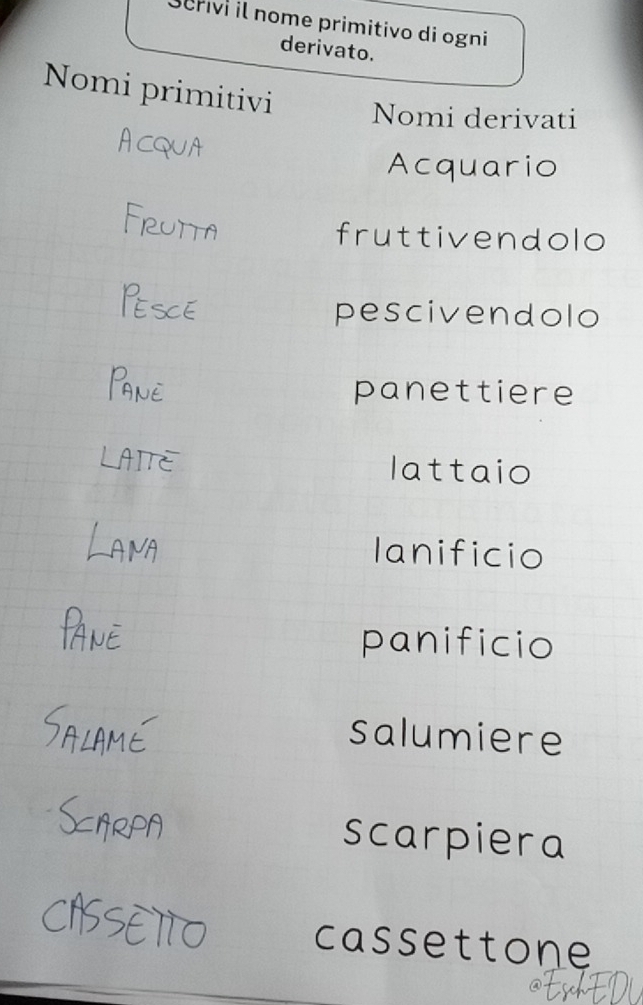 Scrivi il nome primitivo di ogni
derivato.
Nomi primitivi
Nomi derivati
ACQUA
Acquario
FRUTTA
fruttivendolo
PESCE
pescivendolo
PANE
panettiere
LATTE
lattaio
LANA
lanificio
PANE
panificio
SALAME
salumiere
SCARPA
scarpiera
CASSETTO
cassettone